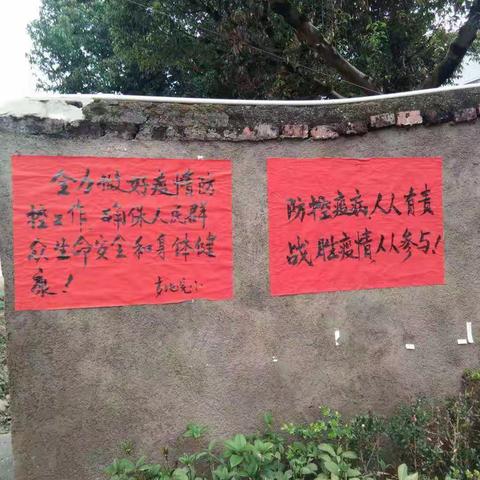 全力做好疫情防
控工作,确保人民群
众生命安全和身体健
康!
防控疫病,人人有责
战胜疫情人人参与!